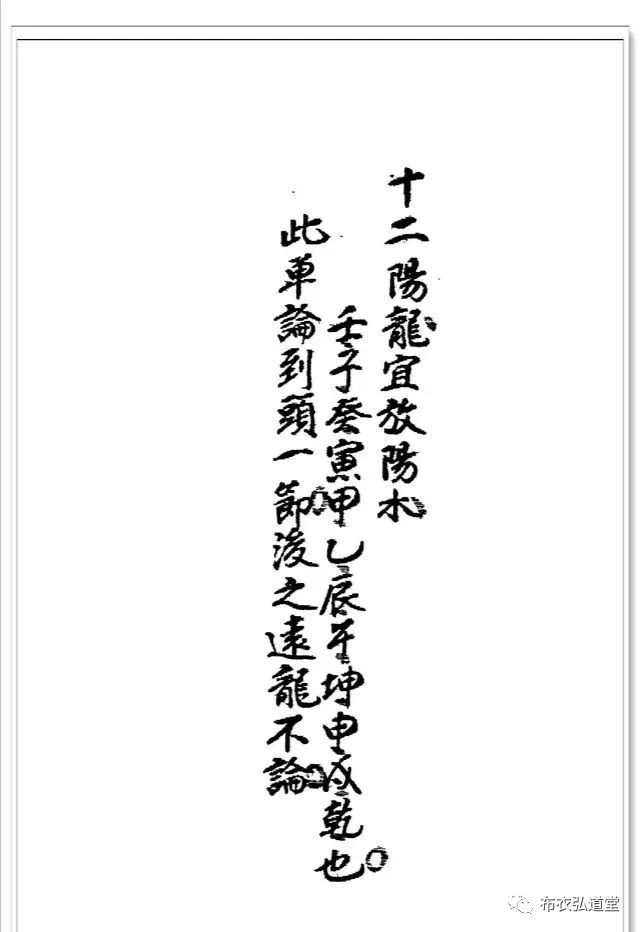 十二陽龍宜放陽水
壬子癸寅甲乙辰午坤申戌乾也
此单論到頭一節後之遠龍不論
布衣弘道堂